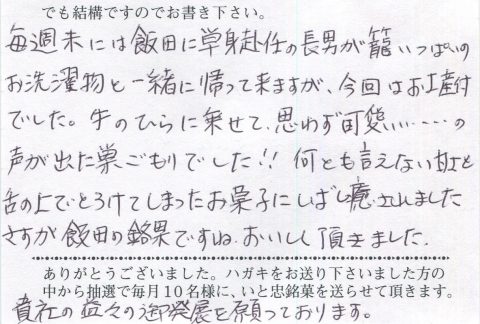 でも結構ですのでお書き下さい。
毎週末には飯田に単身赴任の長男が籠いっぱいの
お洗濯物と一緒に帰って来ますが、今回はお土産付
でした。手のひらに乗せて、思わず可愛いい・・・・の
声が出た巣ごもりでした!! 何とも言えない甘さと
舌の上でとろけてしまったお菓子にしばし癒されました
さすが飯田の銘菓ですね。おいしく頂きました。
ありがとうございました。ハガキをお送り下さいました方の
中から抽選で毎月10名様に、いと忠銘菓を送らせて頂きます。
貴社の益々の御発展を願っております。